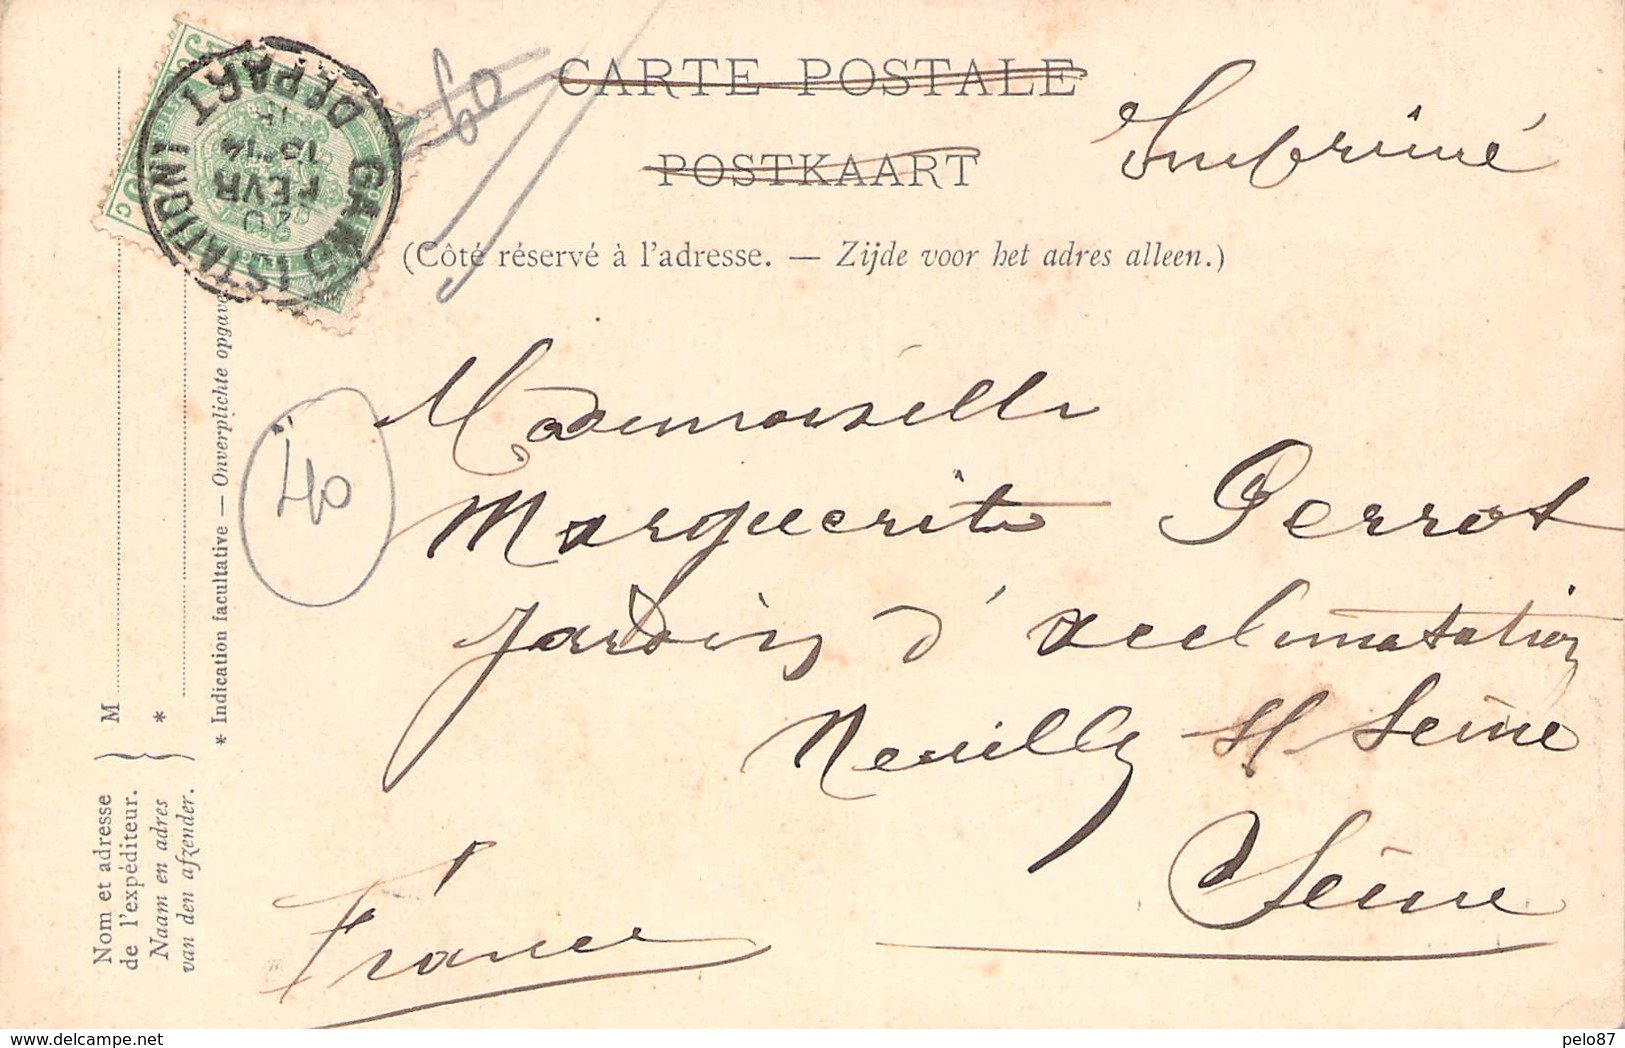 CARTE POSTALE
POSTKAART
Imprimé
(Côté réservé à l'adresse. — Zijde voor het adres alleen.)
60
40
GAND (STATION)
DEPART
20
FEVR
13-14
Mademoiselle
Marguerite Perrot
Jardin d'acclimatation
Neuilly s/ Seine
Seine
France
Nom et adresse
de l'expéditeur.
Naam en adres
van den afzender.
M
*
* Indication facultative — Onverplichte opgave
delcampe.net
pelo87